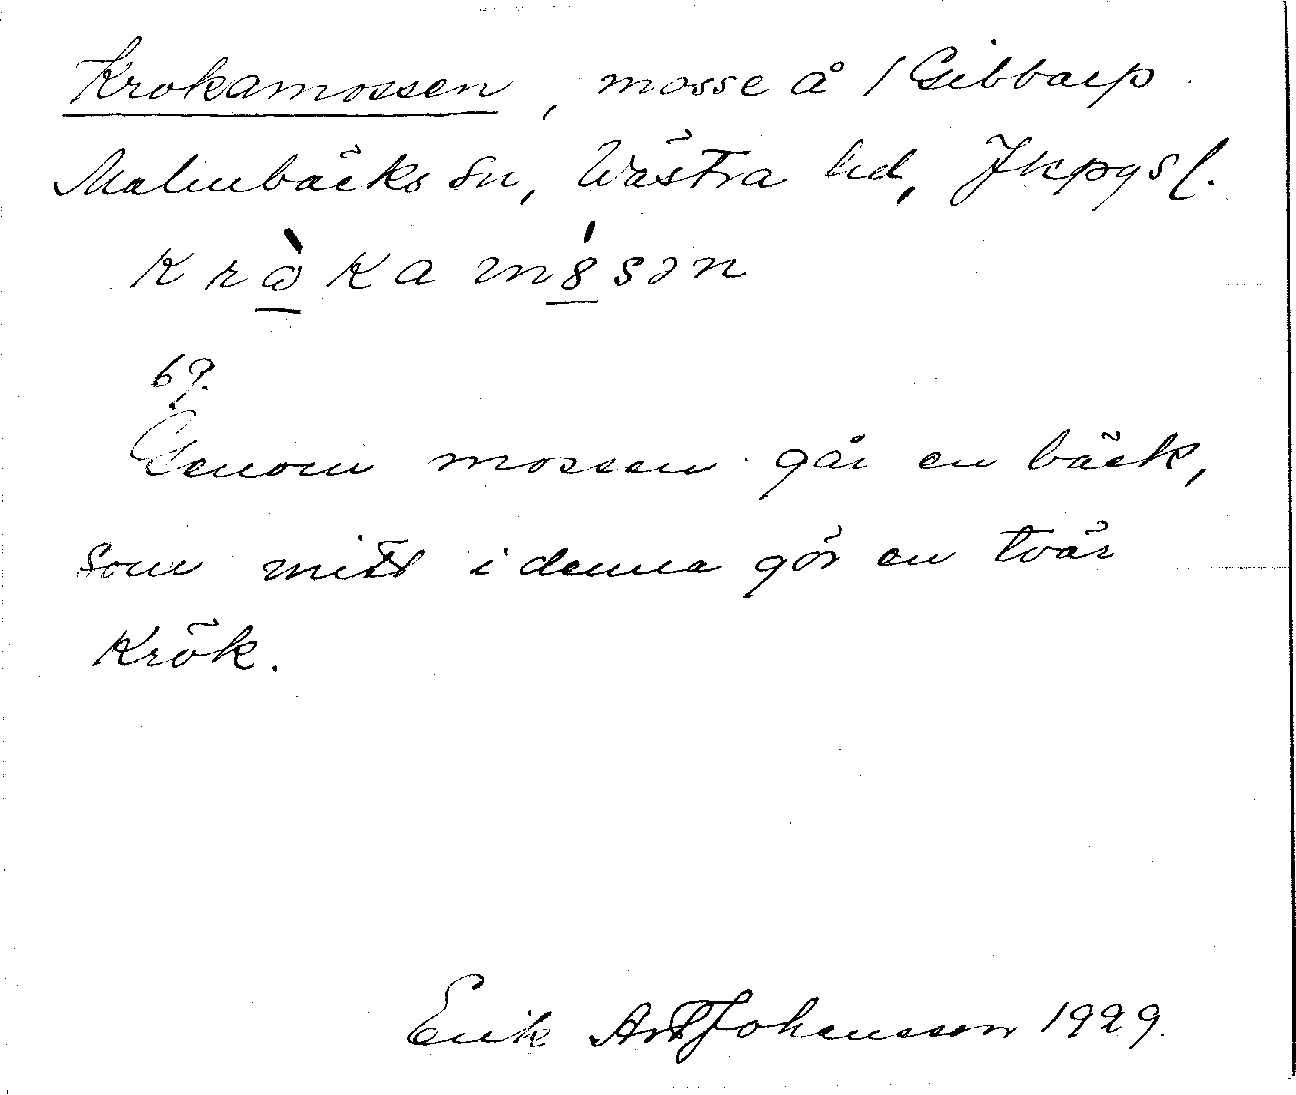 Krokamossen, mosse å / Gibbarp
Malmbäcks sn, Västra hd, Jkpgs l.
kròkamósən
69.
Genom mossen går en bäck,
som mitt i denna gör en tvär
krök.
Erik Art Johansson 1929.